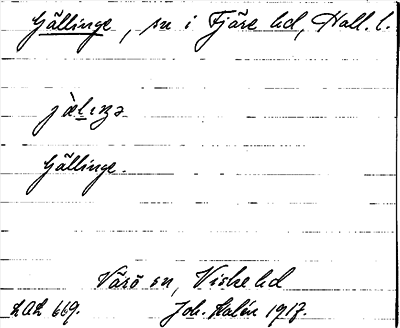 Gällinge, sn i Fjäre hd, Hall. l.
jä̀lıŋə
Gällinge.
Värö sn, Viske hd
LAL 669. Joh. Kalén 1917.